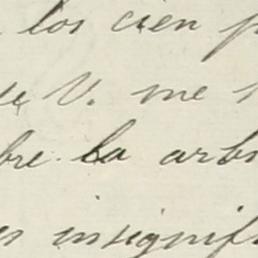 los cien p
ue V. me
bre la arbi
es insignifi